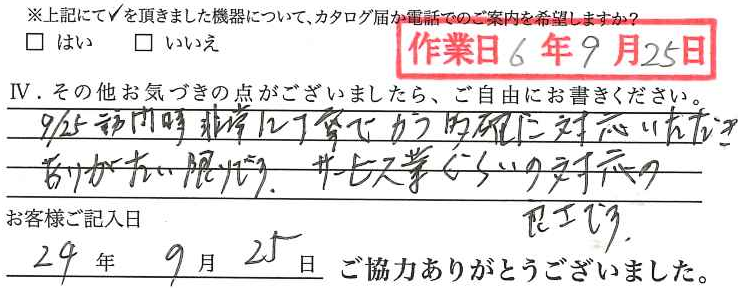 ※上記にて✓を頂きました機器について、カタログ届か電話でのご案内を希望しますか?
□ はい □ いいえ
作業日 6年9月25日
Ⅳ．その他お気づきの点がございましたら、ご自由にお書きください。
9/25 訪問時非常に丁寧でかつ的確に対応いただき
ありがたい限りです。サービス業ぐらいの対応の
良さです。
お客様ご記入日
24年 9月 25日 ご協力ありがとうございました。